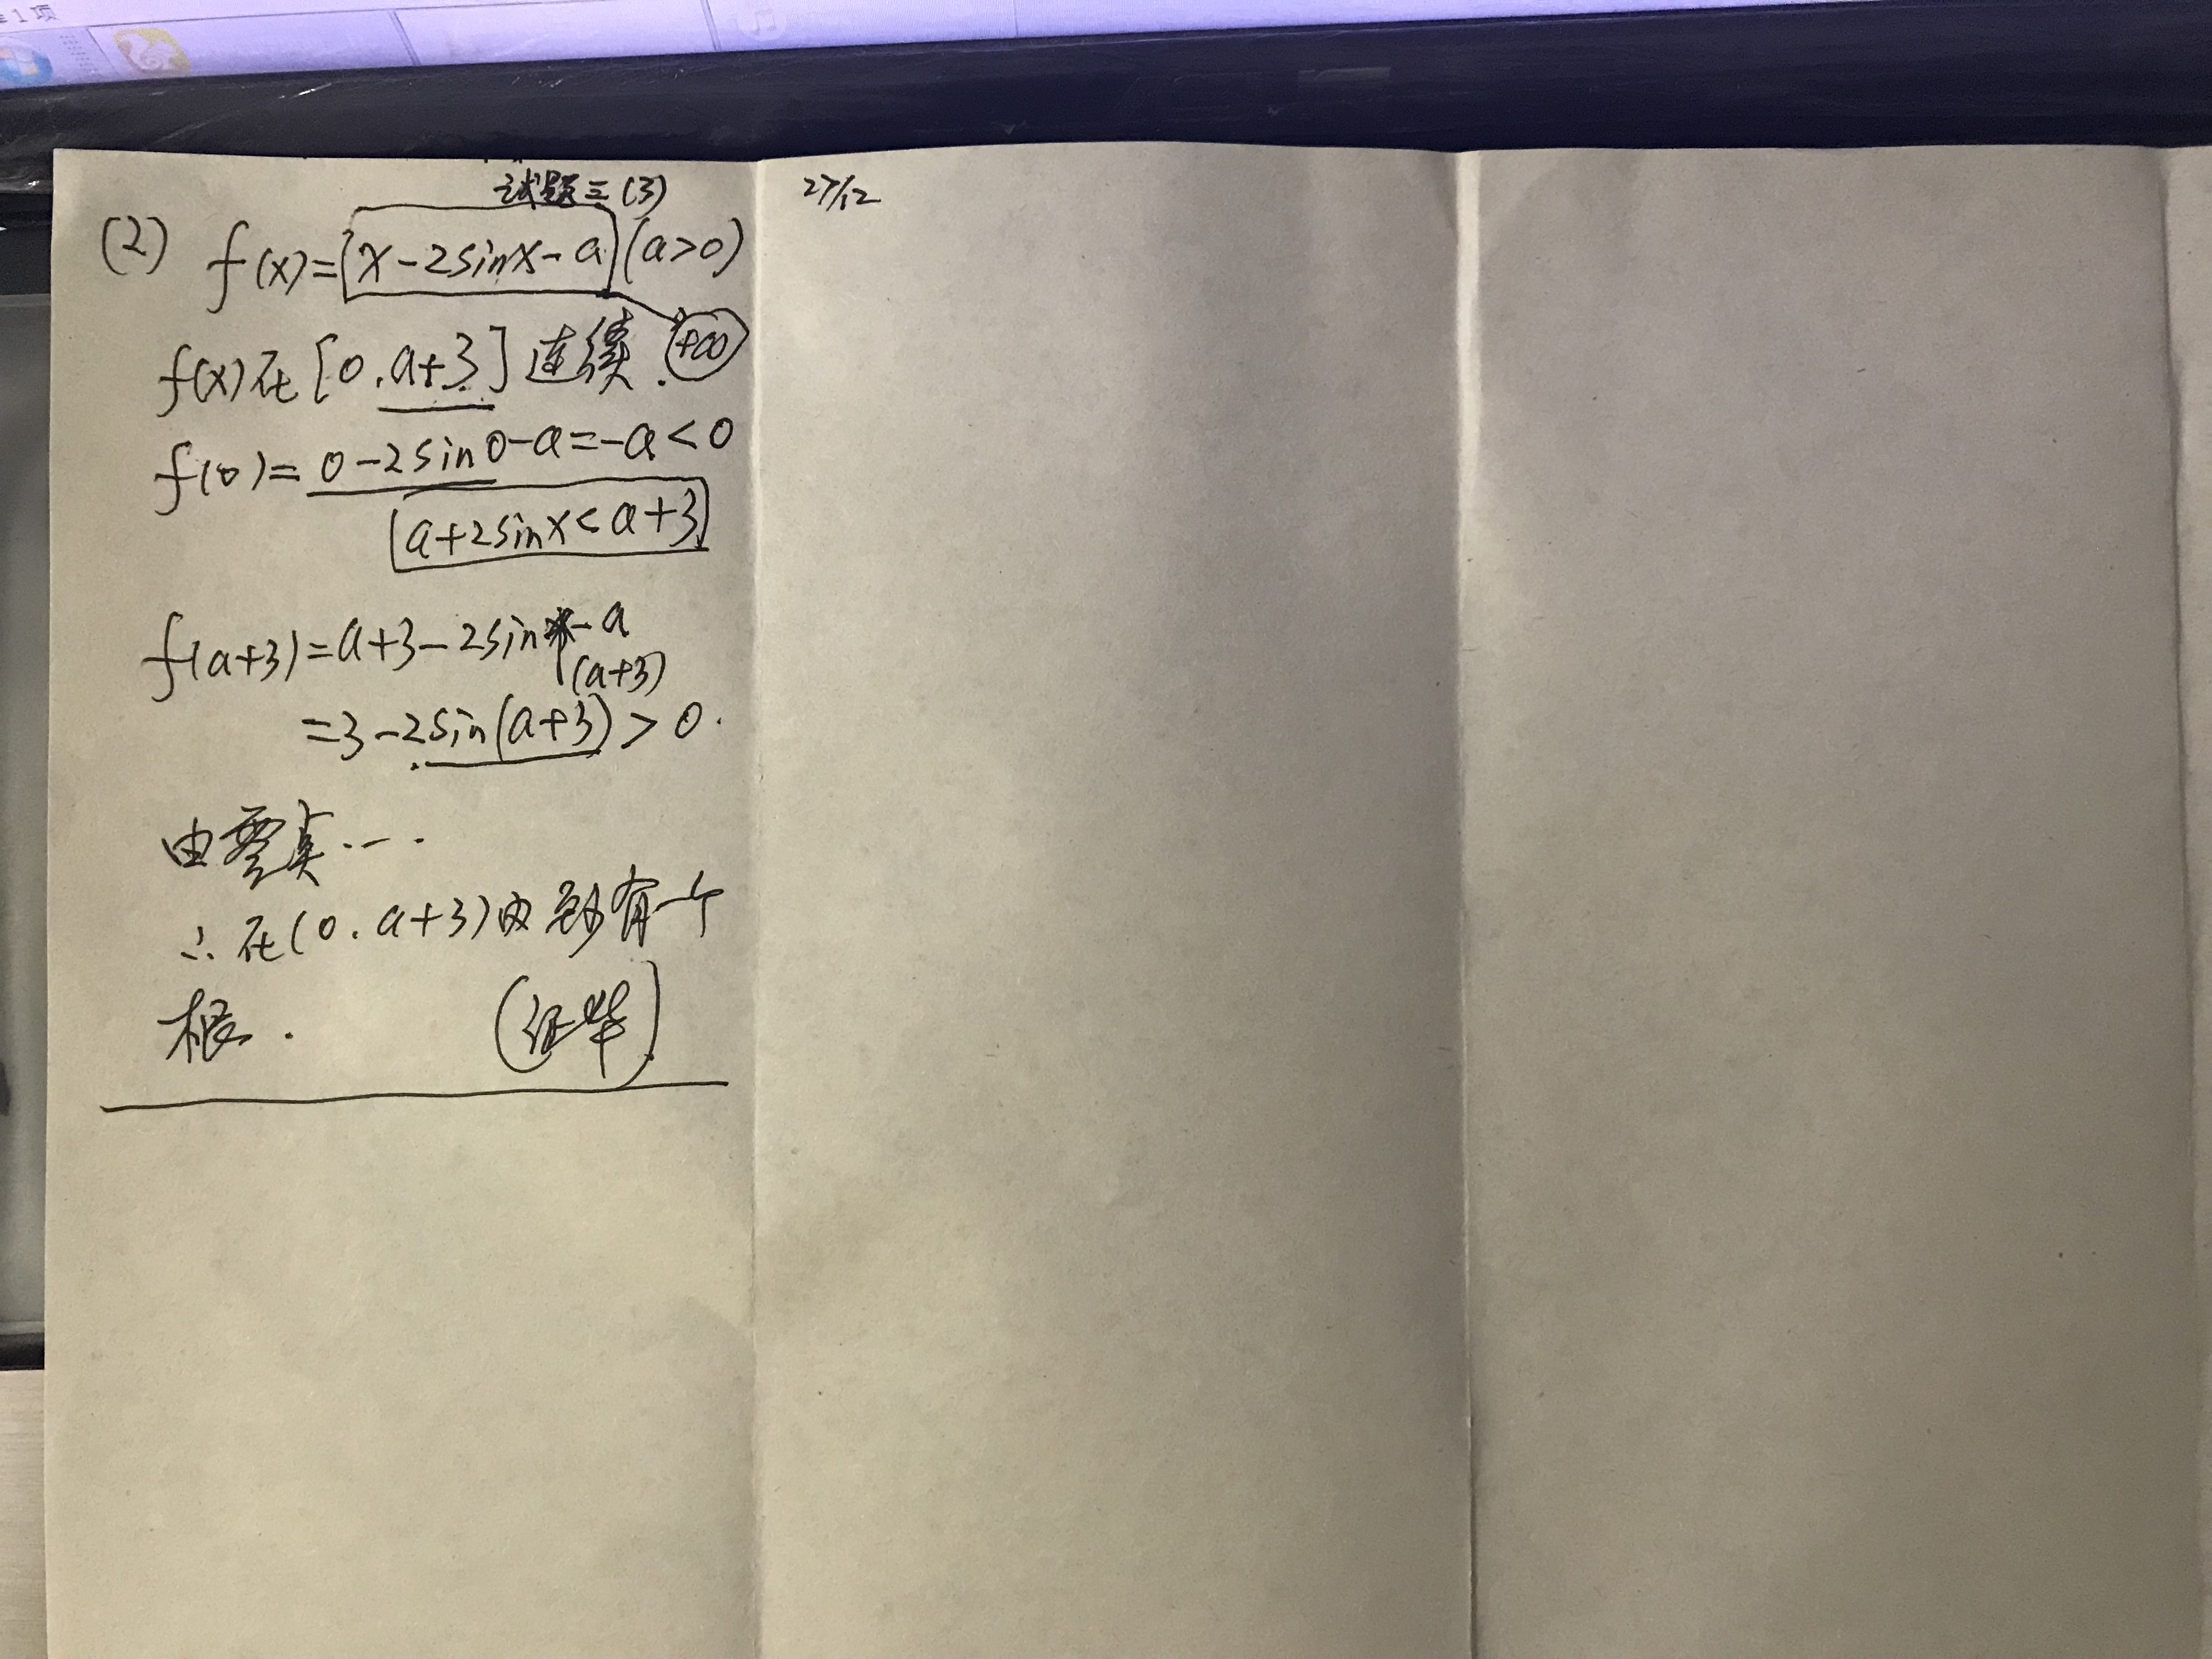 1 项
试题三(3)
27/12
(2) f(x)=[x-2sinx-a](a>0)
+∞
f(x)在[0,a+3]连续.
f(0)=0-2sin0-a=-a<0
a+2sinx<a+3
f(a+3)=a+3-2sin -a
(a+3)
=3-2sin(a+3)>0.
由零点...
∴在(0,a+3)内至少有一个
根.
(证毕)